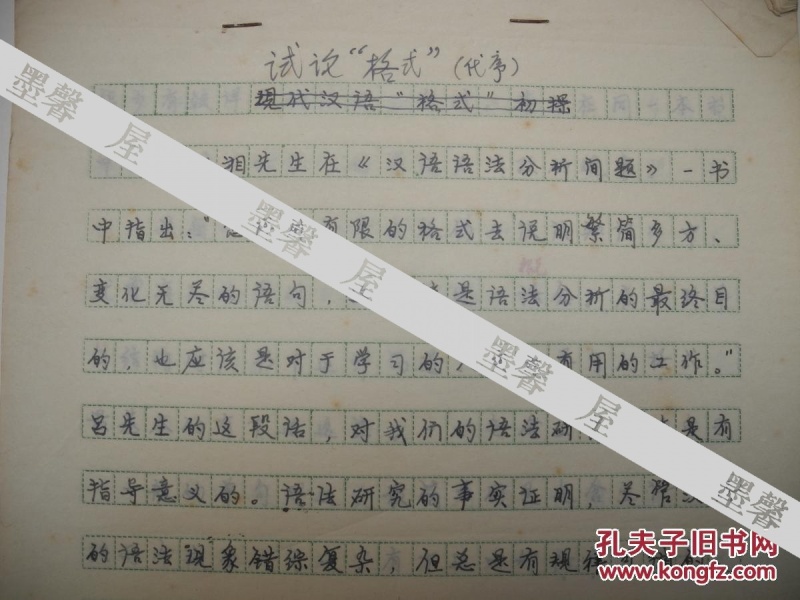 试论“格式”(代序)
现代汉语“格式”初探
湘先生在《汉语语法分析问题》一书
中指出:“ 有限的格式去说明繁简多方、
变化无尽的语句, 是语法分析的最终目
的,也应该是对于学习的 有用的工作。”
吕先生的这段话,对我们的语法研 是有
指导意义的。语法研究的事实证明,尽管
的语法现象错综复杂,但总是有规律
墨馨 屋
墨馨 屋
墨馨 屋
墨馨 屋
孔夫子旧书网
www.kongfz.com